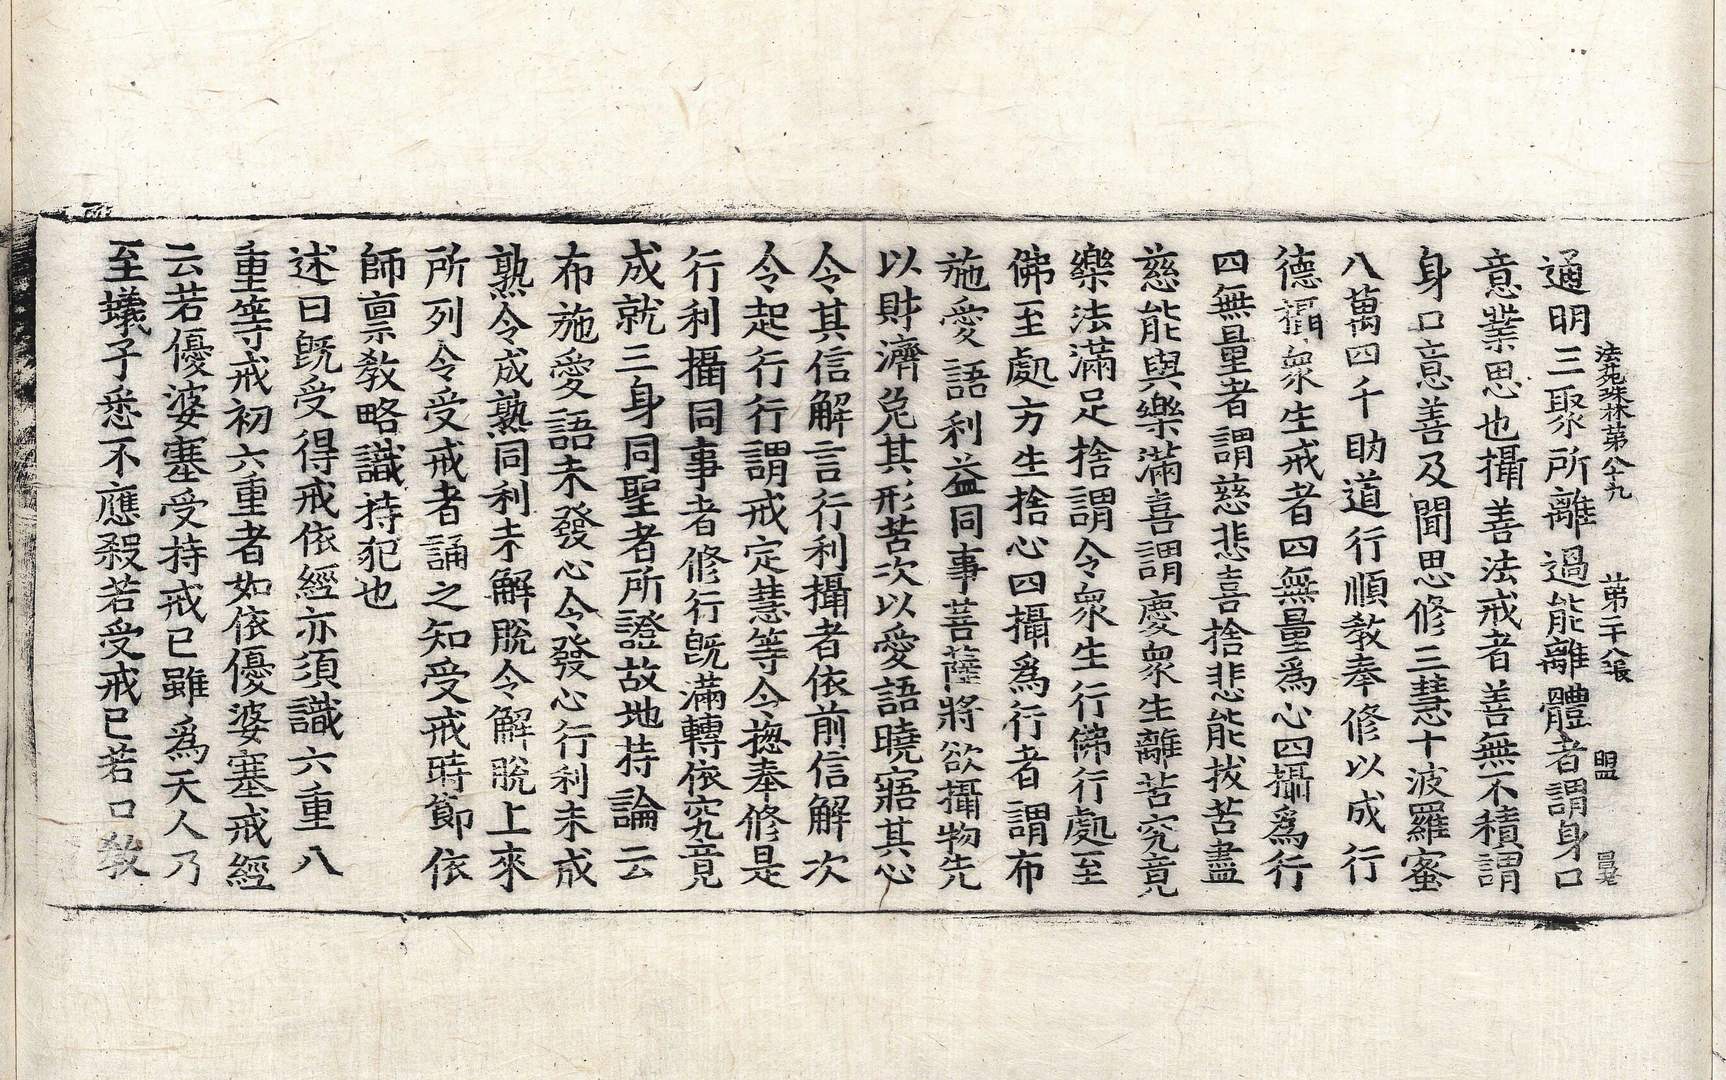 法苑珠林苐八十九 苐二十八張 盟
通明三聚所離過能離體者謂身口
意業思也攝善法戒者善無不積謂
身口意善及聞思修三慧十波羅蜜
八萬四千助道行順教奉修以成行
德攝衆生戒者四無量爲心四攝爲行
四無量者謂慈悲喜捨悲能拔苦盡
慈能與樂滿喜謂慶衆生離苦究竟
樂法滿足捨謂令衆生行佛行處至
佛至處方生捨心四攝爲行者謂布
施愛語利益同事菩薩將欲攝物先
以財濟免其形苦次以愛語曉寤其心
令其信解言行利攝者依前信解次
令起行行謂戒定慧等令揔奉修是
行利攝同事者修行旣滿轉依究竟
成就三身同聖者所證故地持論云
布施愛語未發心令發心行利未成
熟令成熟同利未解脫令解脫上來
所列令受戒者誦之知受戒時節依
師禀教略識持犯也
述曰旣受得戒依經亦須識六重八
重等戒初六重者如依優婆塞戒經
云若優婆塞受持戒已雖爲天人乃
至蟻子悉不應殺若受戒已若口教